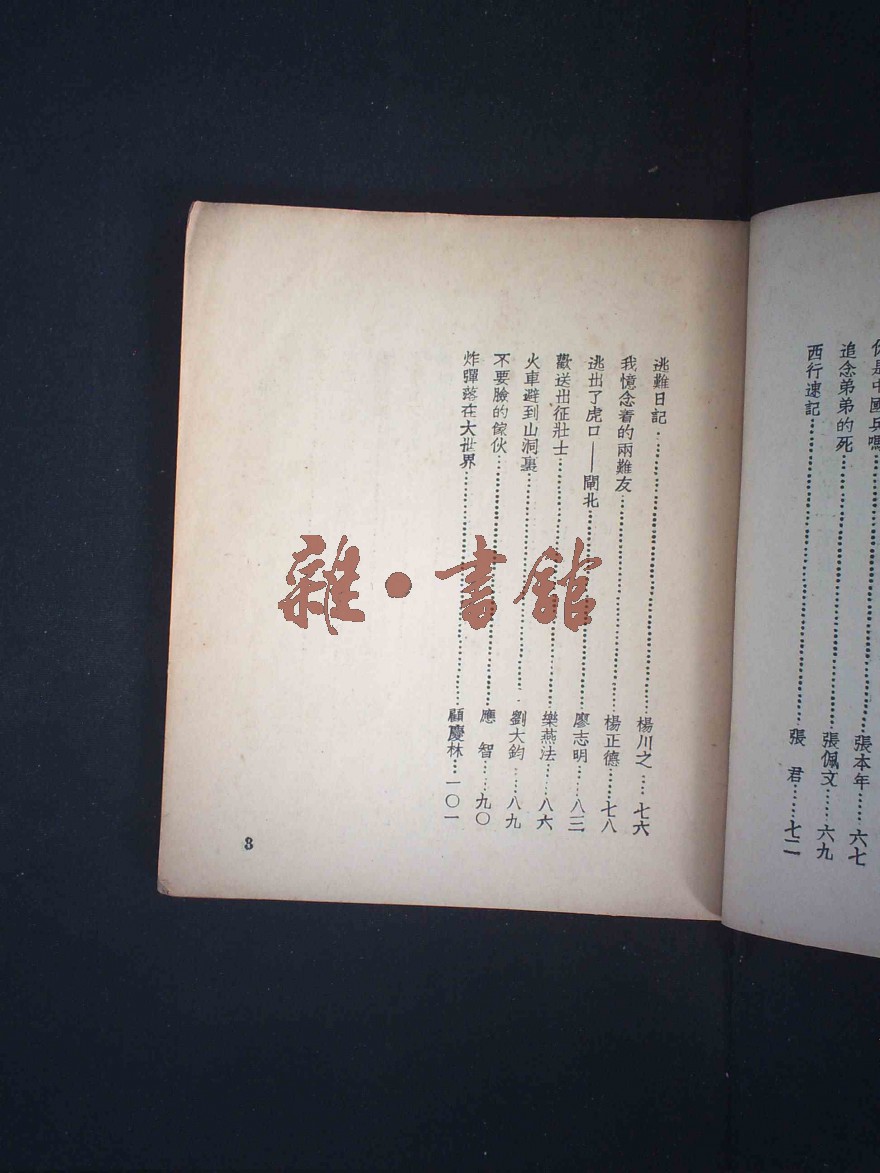 你是中國兵嗎……張本年……六七
追念弟弟的死……張佩文……六九
西行速記……張　君……七二
逃難日記……楊川之……七六
我憶念着的兩難友……楊正德……七八
逃出了虎口——閘北……廖志明……八三
歡送出征壯士……樂燕法……八六
火車避到山洞裏……劉大鈞……八九
不要臉的傢伙……應　智……九〇
炸彈落在大世界……顧慶林……一〇一
3
雜・書館